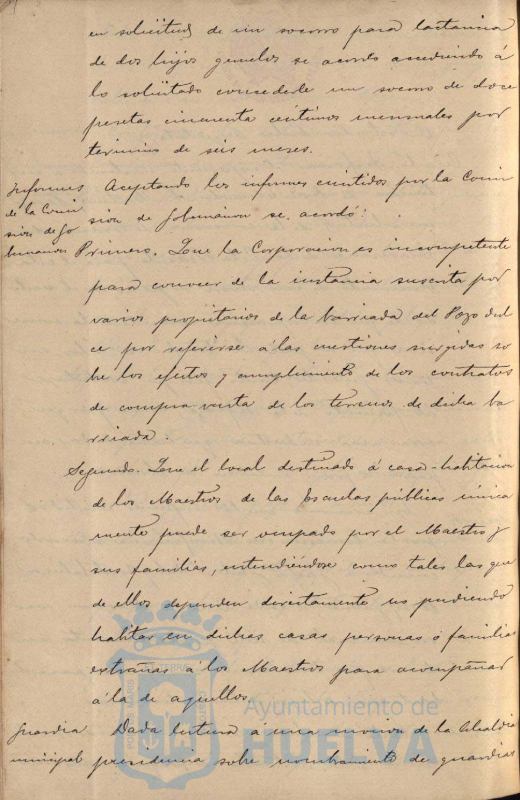 en solicitud de un socorro para lactancia
de dos hijos gemelos se acordó accediendo á
lo solicitado concederle un socorro de doce
pesetas cincuenta centimos mensuales por
termino de seis meses.
Informes
de la Comi
sion de Go
bernacion
Aceptando los informes emitidos por la Comi
sion de Gobernacion se acordó:
Primero. Que la Corporacion es incompetente
para conocer de la instancia suscrita por
varios propietarios de la barriada del Pozo dul
ce por referirse á las cuestiones surgidas so
bre los efectos y cumplimiento de los contratos
de compra-venta de los terrenos de dicha ba
rriada.
Segundo. Que el local destinado á casa-habitacion
de los Maestros de las Escuelas públicas única
mente puede ser ocupado por el Maestro y
sus familias, entendiéndose como tales las que
de ellos dependen directamente no pudiendo
habitar en dichas casas personas ó familias
extrañas á los Maestros para acompañar
á la de aquellos.
Guardia
municipal
Dada lectura á una mocion de la Alcaldia
presidencia sobre nombramiento de guardias
Ayuntamiento de
HUELVA